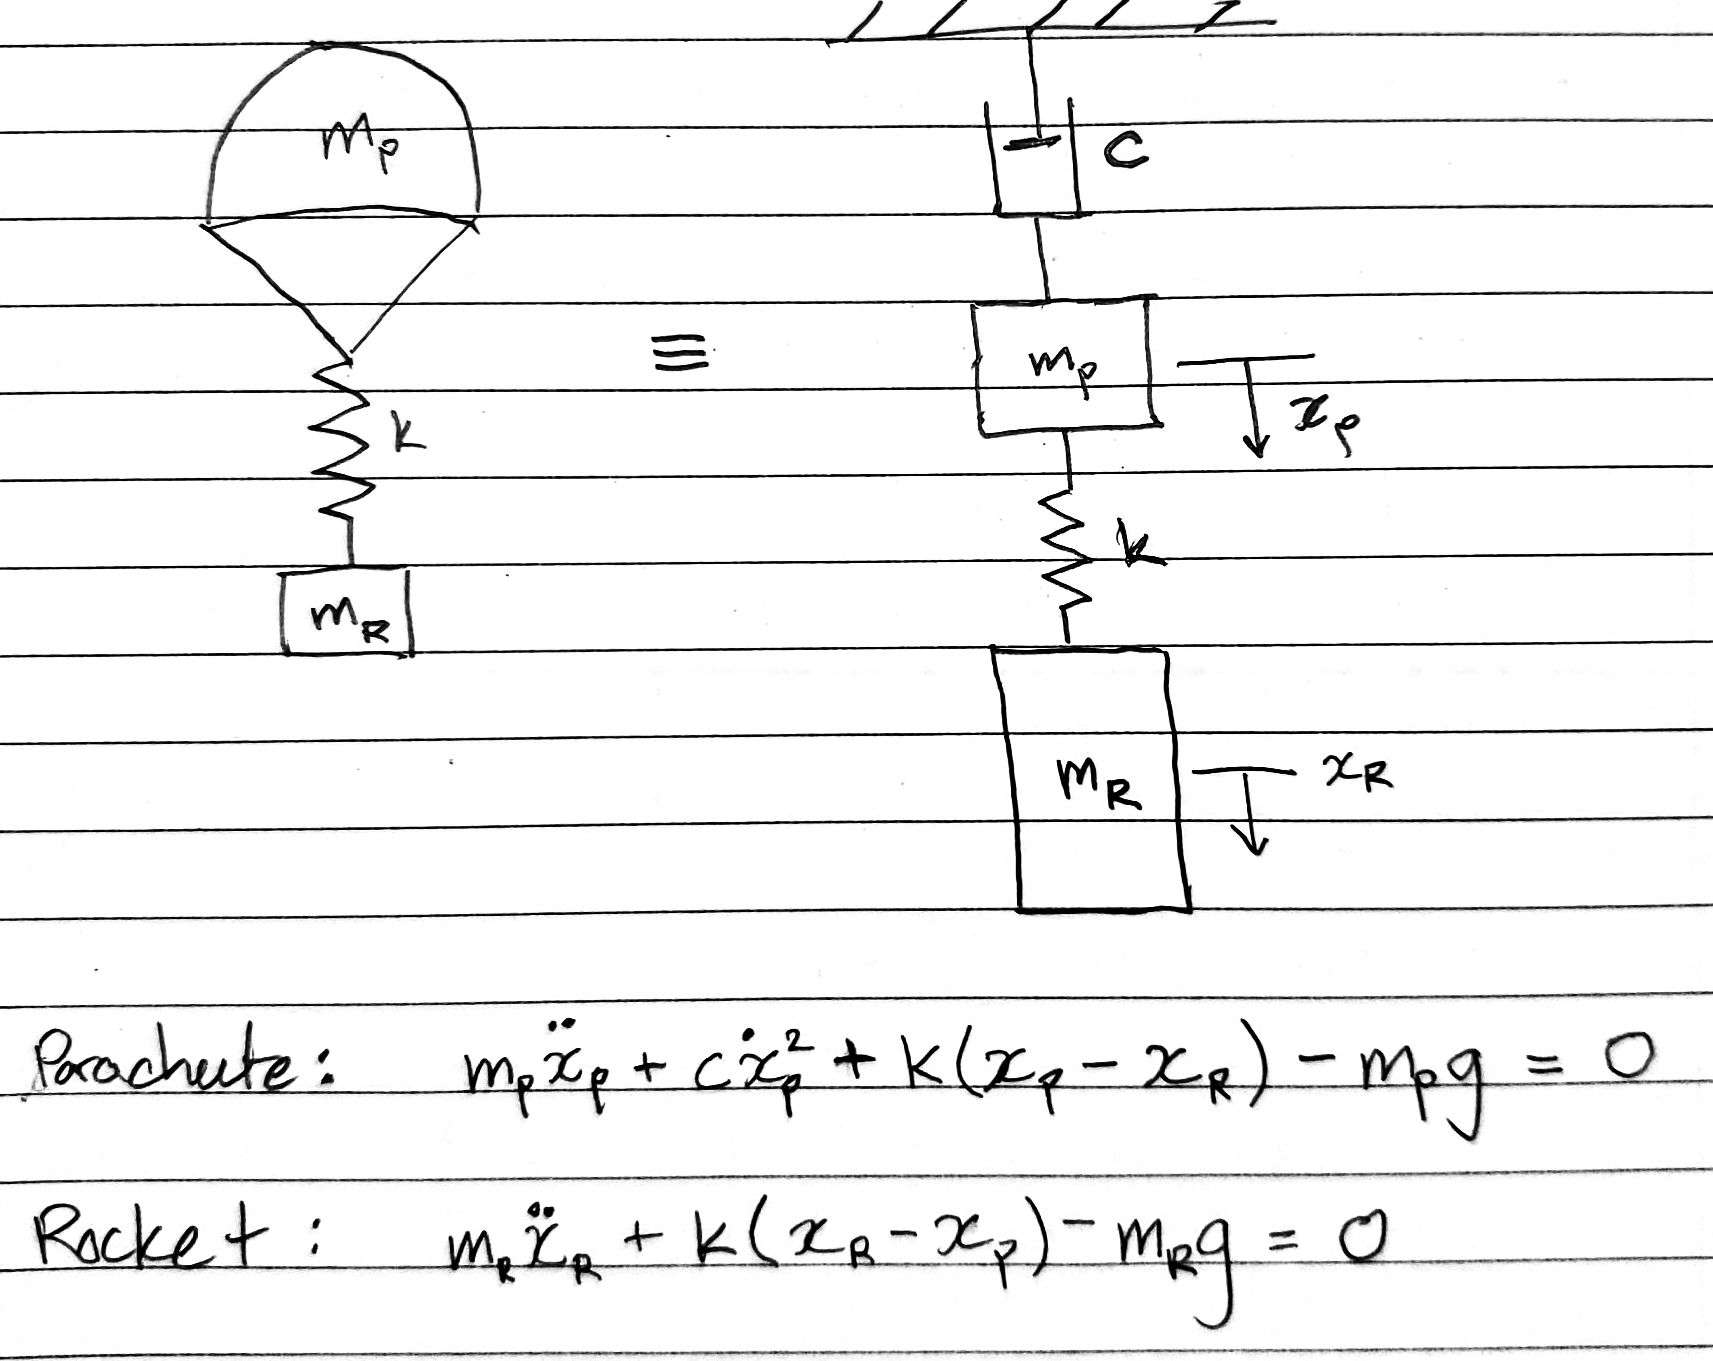 m_p
C
≡
m_p
x_p
k
k
m_R
m_R
x_R
Parachute: m_p ẍ_p + cẋ_p² + k(x_p − x_R) − m_p g = 0
Rocket: m_R ẍ_R + k(x_R − x_p) − m_R g = 0